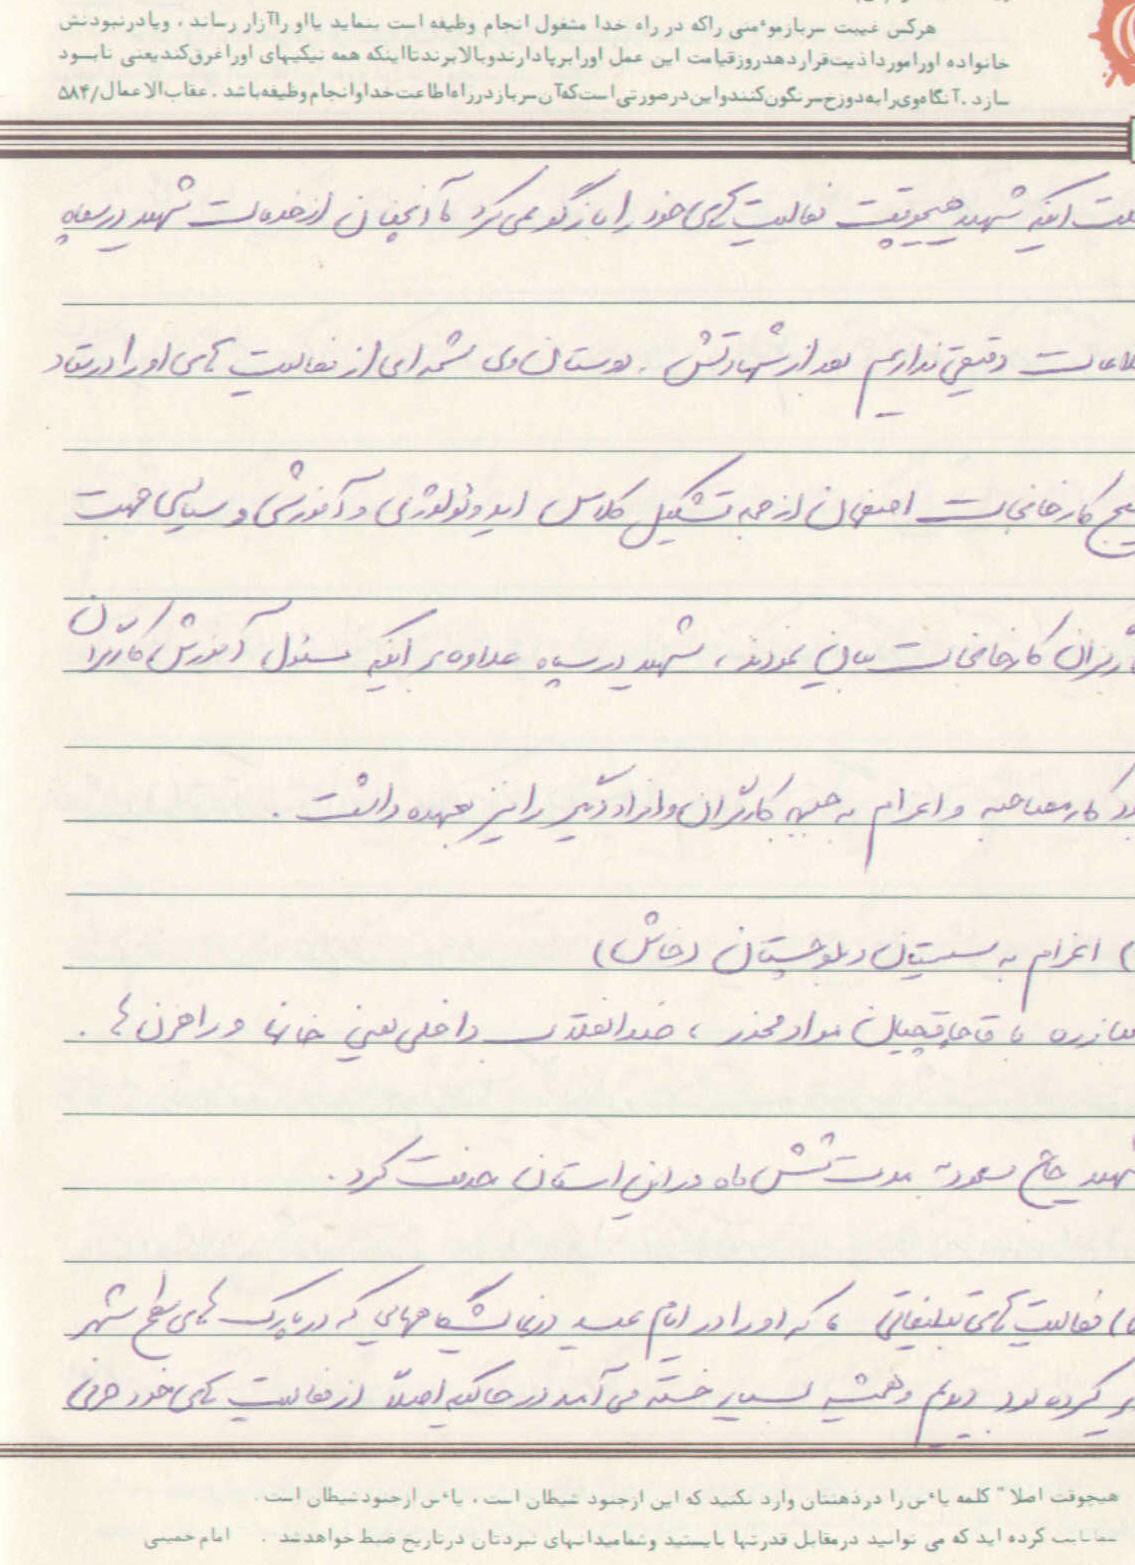 هرکس غیبت سربازموٴمنی راکه در راه خدا مشغول انجام وظیفه است بنماید یااو راآزار رساند ، ویادرنبودنش
خانواده اورامورداذیت‌قراردهدروزقیامت این عمل اورابرپادارندوبالابرندتااینکه همه نیکیهای اوراغرق‌کندیعنی نابود
سازد .آنگاه‌وی‌رابه‌دوزخ‌سرنگون‌کنندواین‌درصورتی‌است‌که‌آن‌سربازدرراه‌اطاعت‌خداوانجام‌وظیفه‌باشد . عقاب‌الاعمال/۵۸۴
اینکه شهید هیچوقت فعالیت های خود را بازگو نمی کرد ما آنچنان از خدمات شهید در سپاه
دقیقی نداریم بعد از شهادتش . دوستان وی شمه ای از فعالیت های او را در ستاد
کارخانجات اصفهان از جمله تشکیل کلاس ایدوئولوژی و آموزشی و سیاسی جهت
کارخانجات بیان نمودند ، شهید در سپاه علاوه بر اینکه مسئول آموزش کارگران
کار مصاحبه و اعزام به جبهه کارگران و افراد دیگر را نیز بعهده داشت .
) اعزام به سیستان و بلوچستان (خاش)
مبارزه با قاچاقچیان مواد مخدر ، ضد انقلاب داخلی یعنی خانها و راهزن ها .
شهید حاج مسعود مدت شش ماه در این استان خدمت کرد .
) فعالیت های تبلیغاتی ، که او را در ایام عید در نمایشگاههایی که در پارک های سطح شهر
کرده بود دیدیم و همیشه بسیار خسته می آمد در حالیکه اصلاً از فعالیت های خود حرفی
هیچوقت اصلا" کلمه یاٴس را درذهنتان وارد نکنید که این ازجنود شیطان است ، یاٴس ازجنودشیطان است .
کرده اید که می توانید درمقابل قدرتها بایستید وشمامیدانهای نبردتان درتاریخ ضبط خواهدشد . امام خمینی